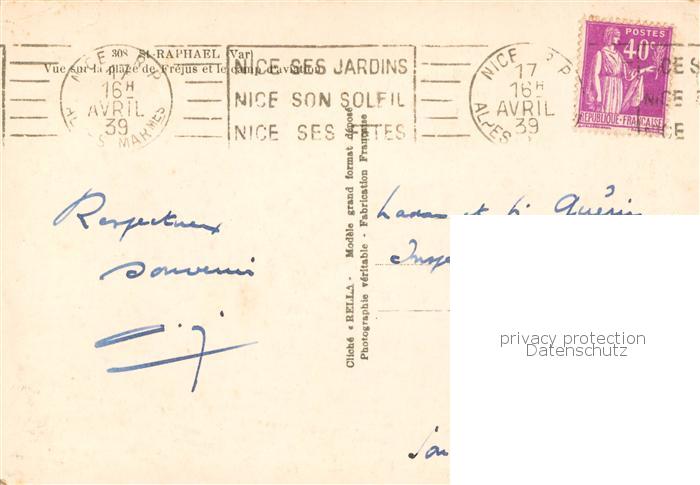 308 St-RAPHAEL (Var)
Vue sur la place de Fréjus et le camp d'aviation
NICE
16H
AVRIL
39
MARMES
NICE SES JARDINS
NICE SON SOLEIL
NICE SES FÊTES
NICE
17
16H
AVRIL
39
ALPES
POSTES
40c
REPUBLIQUE-FRANÇAISE
NICE S
NICE
NICE
Respectueux
souvenir
Cliché « RELLA - Modèle grand format déposé
Photographie véritable - Fabrication Française
et Guérin
privacy protection
Datenschutz